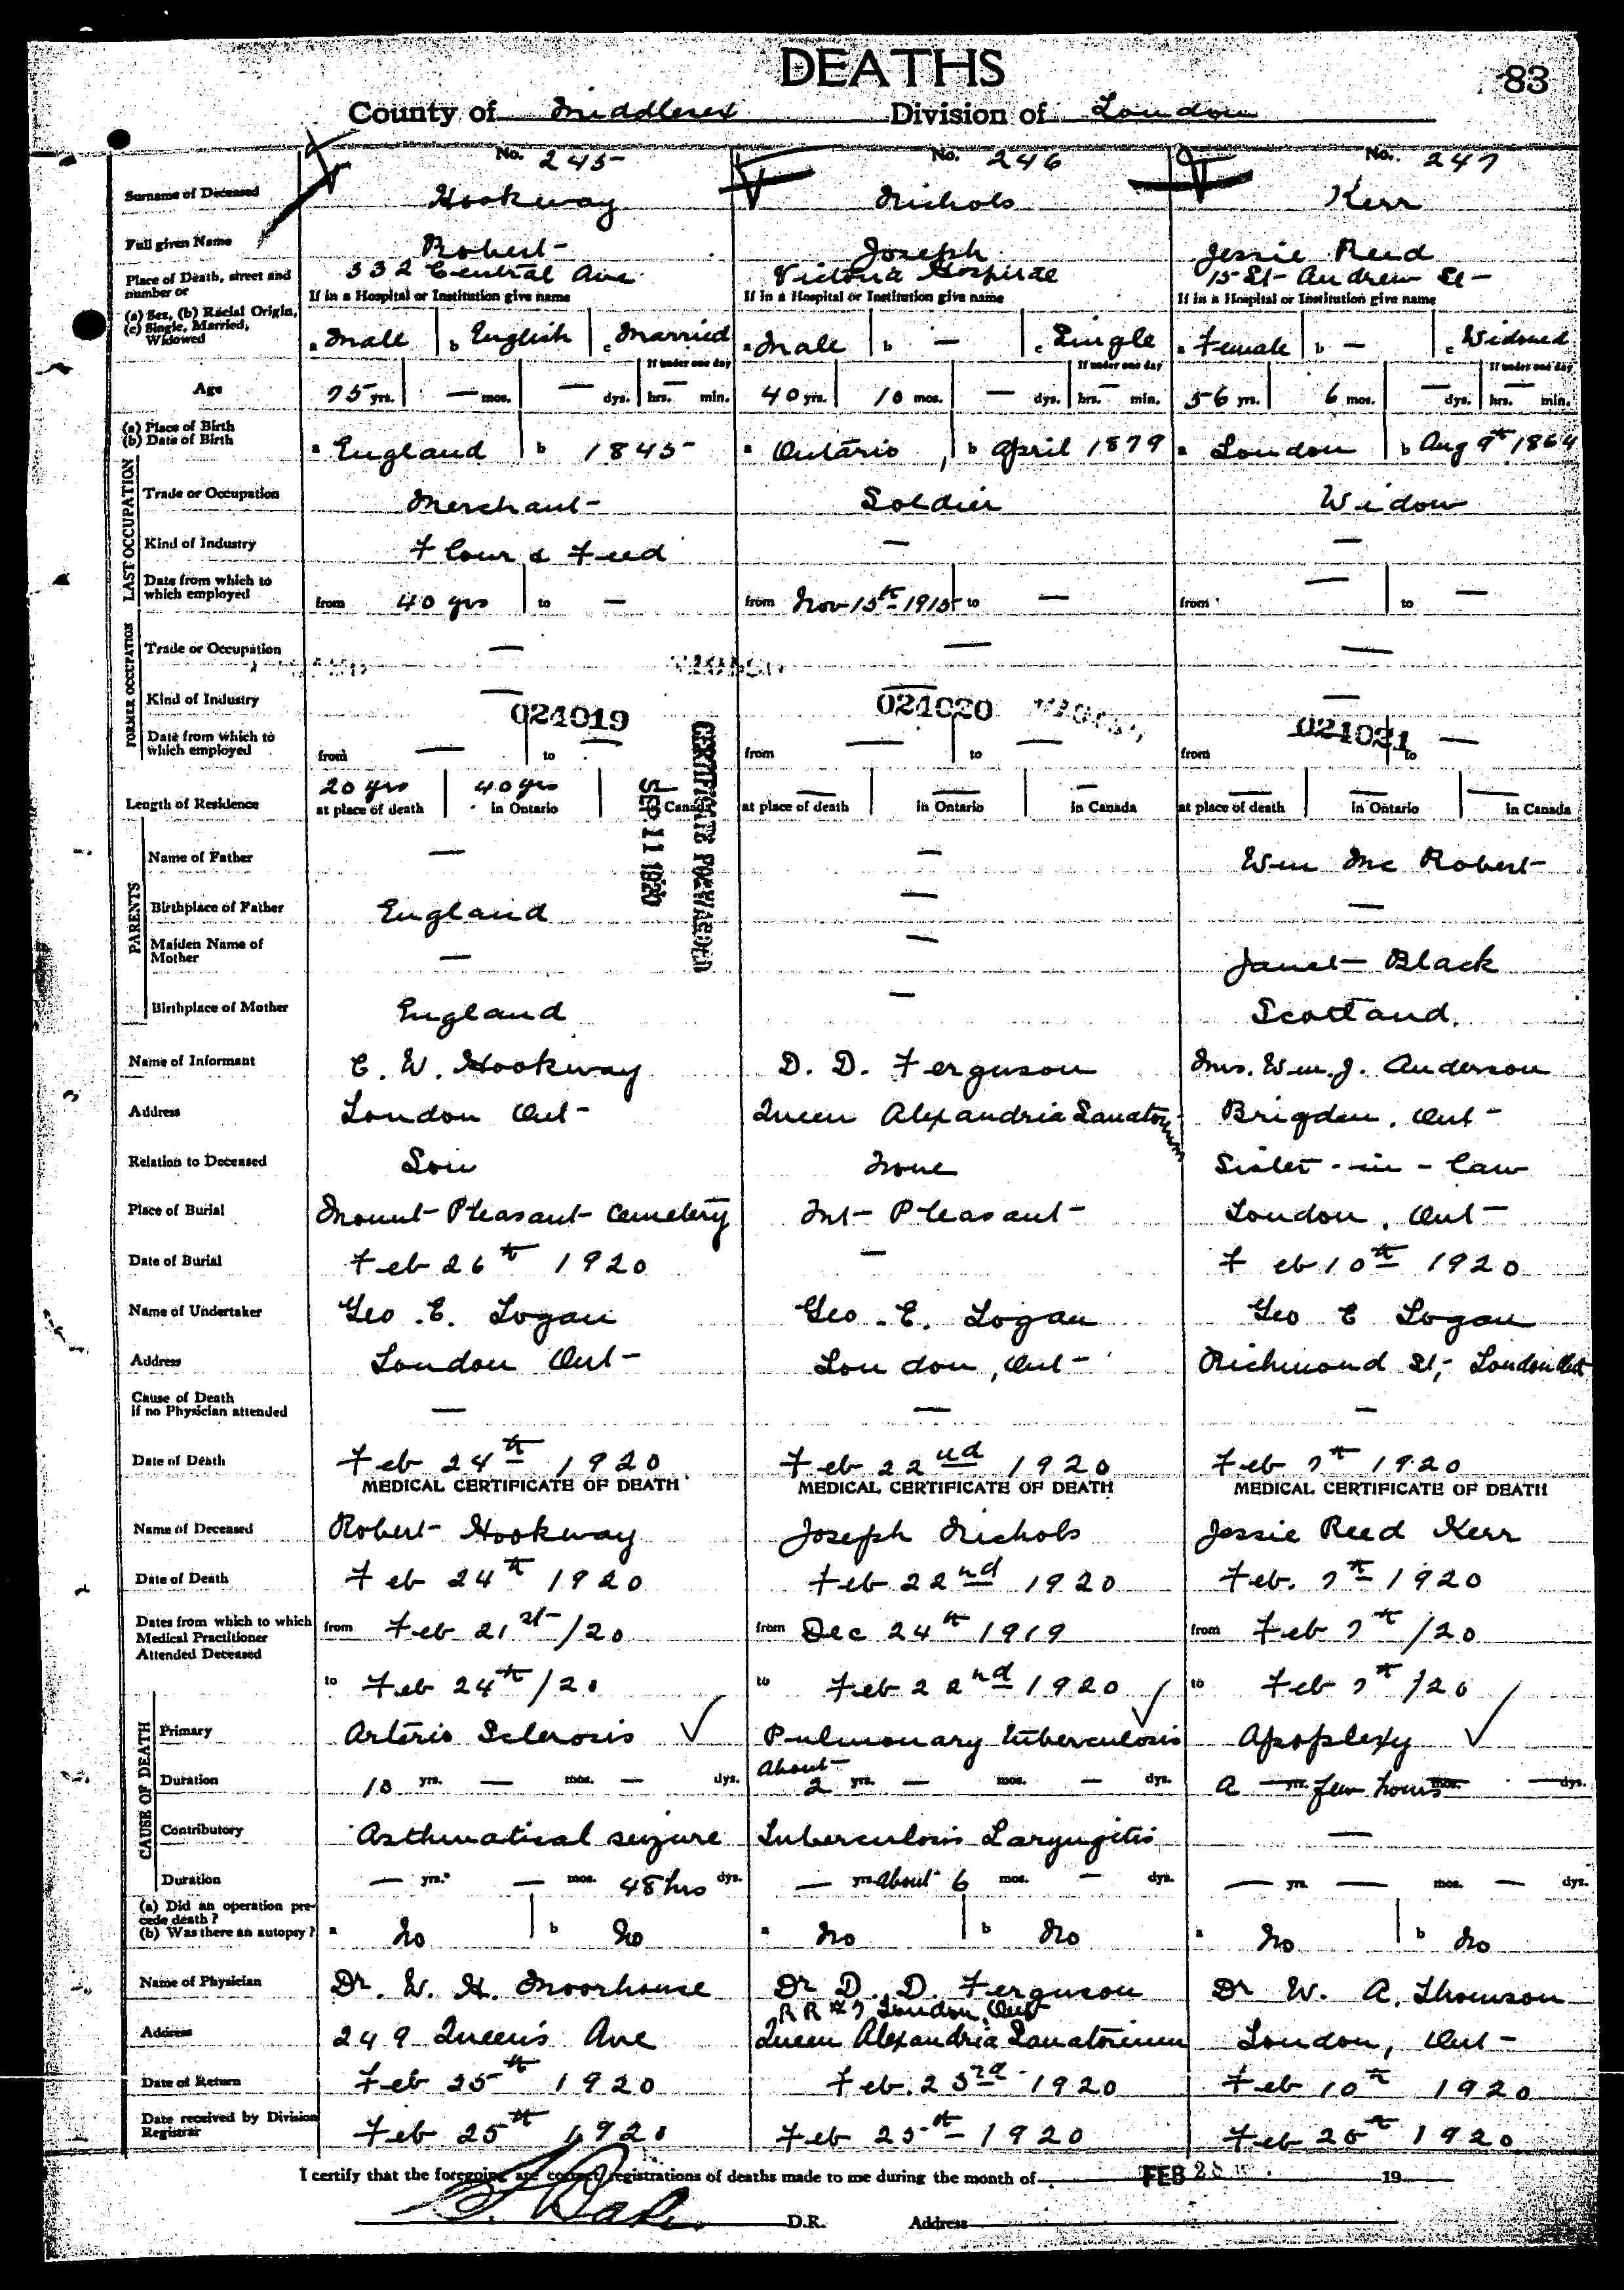 DEATHS
83
County of Middlesex Division of London
No. 245 No. 246 No. 247
Surname of Deceased Hookway Nichols Kerr
Full given Name Robert Joseph Jessie Reed
Place of Death, street and number or 332 Central Ave Victoria Hospital 15 St Andrew St
If in a Hospital or Institution give name If in a Hospital or Institution give name If in a Hospital or Institution give name
(a) Sex, (b) Racial Origin, (c) Single, Married, Widowed a Male b English c Married a Male b — c Single a Female b — c Widowed
If under one day If under one day If under one day
Age 75 yrs. — mos. — dys. hrs. — min. 40 yrs. 10 mos. — dys. hrs. — min. 56 yrs. 6 mos. — dys. hrs. — min.
(a) Place of Birth (b) Date of Birth a England b 1845 a Ontario b April 1879 a London b Aug 9th 1864
LAST OCCUPATION
Trade or Occupation Merchant Soldier Widow
Kind of Industry Flour & Feed — —
Date from which to which employed from 40 yrs to — from Nov 15th 1915 to — from — to —
FORMER OCCUPATION
Trade or Occupation — — —
Kind of Industry — — —
024019 024020 024021
Date from which to which employed from — to — from — to — from to —
CERTIFICATE FORWARDED
SEP 11 1920
Length of Residence 20 yrs at place of death 40 yrs in Ontario in Canada — at place of death — in Ontario — in Canada — at place of death — in Ontario — in Canada
PARENTS
Name of Father — — Wm Mc Robert
Birthplace of Father England — —
Maiden Name of Mother — — Janet Black
Birthplace of Mother England — Scotland.
Name of Informant C. W. Hookway D. D. Ferguson Mrs. Wm. J. Anderson
Address London Ont Queen Alexandria Sanatorium Brigden, Ont
Relation to Deceased Son None Sister-in-law
Place of Burial Mount Pleasant Cemetery Mt Pleasant London, Ont
Date of Burial Feb 26th 1920 — Feb 10th 1920
Name of Undertaker Geo. E. Logan Geo. E. Logan Geo E Logan
Address London Ont London, Ont Richmond St, London Ont
Cause of Death if no Physician attended — — —
Date of Death Feb 24th 1920 Feb 22nd 1920 Feb 7th 1920
MEDICAL CERTIFICATE OF DEATH MEDICAL CERTIFICATE OF DEATH MEDICAL CERTIFICATE OF DEATH
Name of Deceased Robert Hookway Joseph Nichols Jessie Reed Kerr
Date of Death Feb 24th 1920 Feb 22nd 1920 Feb. 7th 1920
Dates from which to which Medical Practitioner Attended Deceased from Feb 21st/20 from Dec 24th 1919 from Feb 7th/20
to Feb 24th/20 to Feb 22nd 1920 to Feb 7th/20
CAUSE OF DEATH
Primary Arterio Sclerosis Pulmonary Tuberculosis Apoplexy
Duration 10 yrs. — mos. — dys. About 2 yrs. — mos. — dys. A — yrs. few hours mos. — dys.
Contributory Asthmatical seizure Tuberculosis Laryngitis —
Duration — yrs. — mos. 48 hrs dys. — yrs. About 6 mos. — dys. — yrs. — mos. — dys.
(a) Did an operation precede death? (b) Was there an autopsy? a No b No a No b No a No b No
Name of Physician Dr. W. H. Moorhouse Dr D. D. Ferguson Dr W. A. Thomson
R R #7 London, Ont
Address 249 Queen's Ave Queen Alexandria Sanatorium London, Ont
Date of Return Feb 25th 1920 Feb. 23rd 1920 Feb 10th 1920
Date received by Division Registrar Feb 25th 1920 Feb 25th 1920 Feb 25th 1920
I certify that the foregoing are correct registrations of deaths made to me during the month of FEB 28 19
D.R. Address